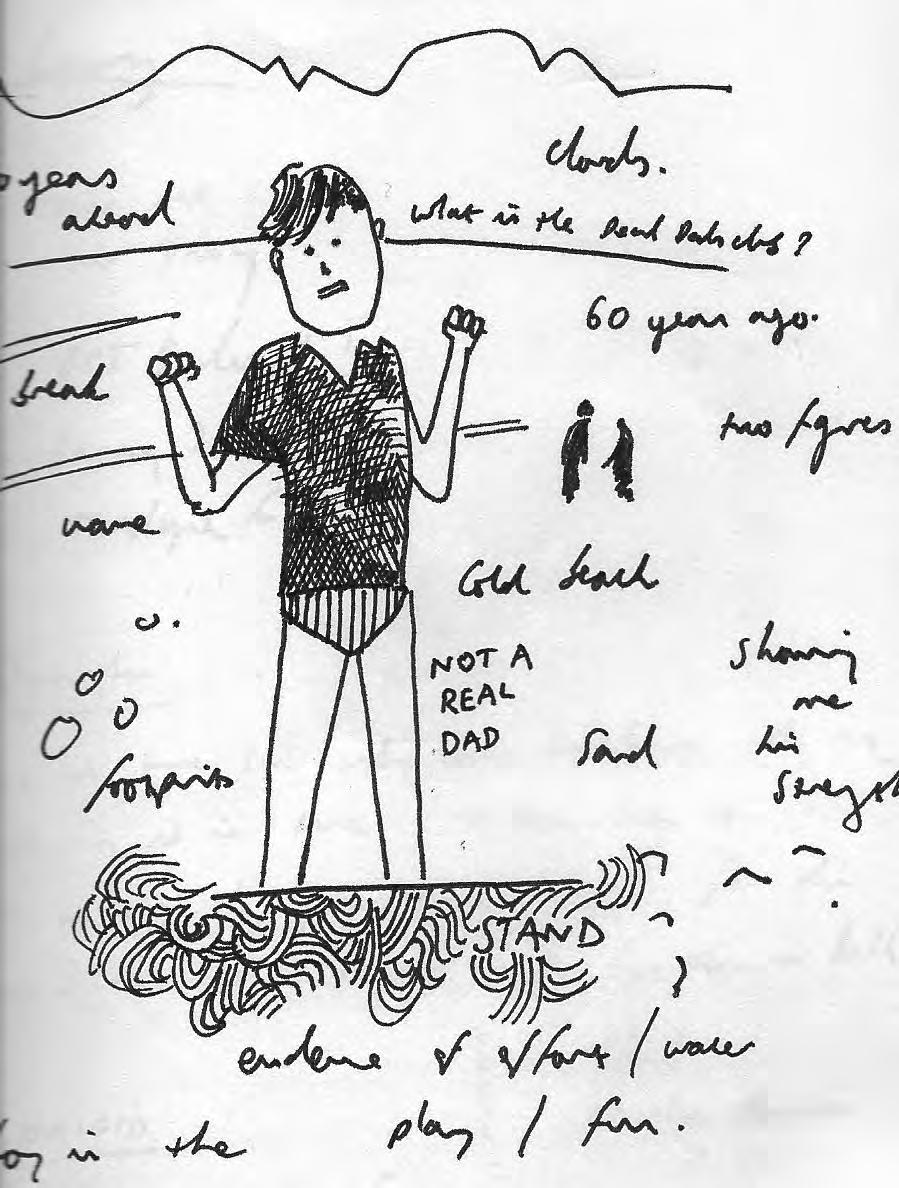 clouds.
years
ahead
what is the Dead Dads club?
60 years ago.
break
two figures
name
Cold beach
NOT A
REAL
DAD
showing
me
his
strength
Sand
footprints
STAND
evidence of effort / water
in the play / fun.